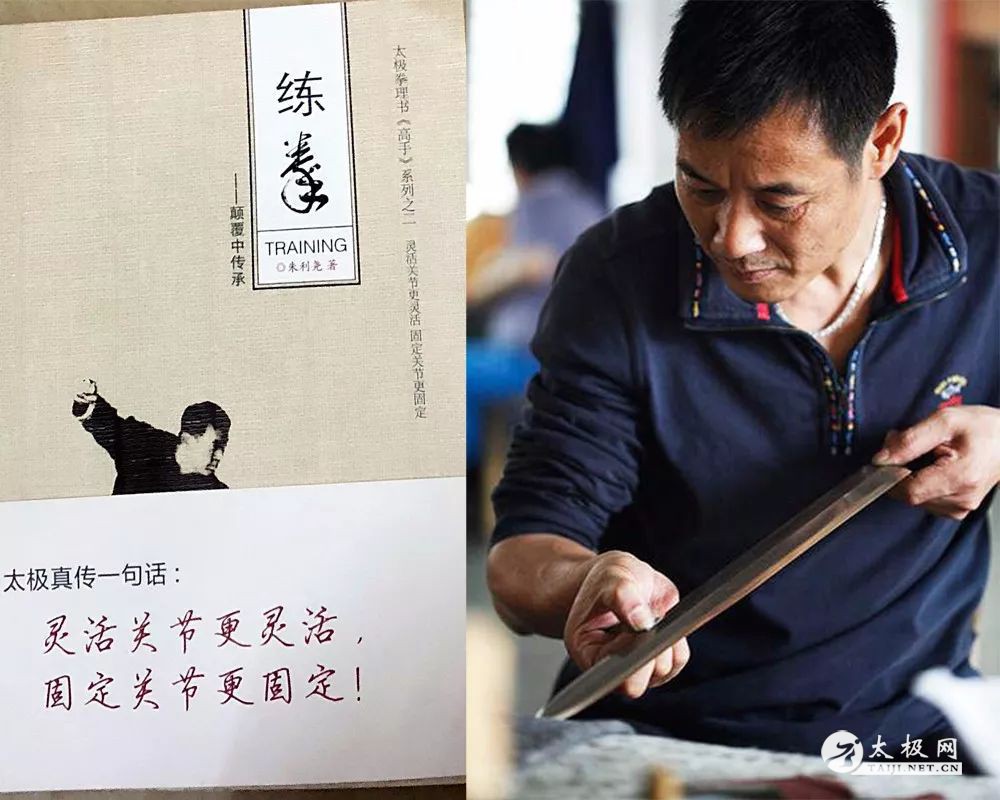 练
拳
TRAINING
◎朱利尧 著
——颠覆中传承
太极拳理书《高手》系列之二 灵活关节更灵活 固定关节更固定
太极真传一句话：
灵活关节更灵活，
固定关节更固定！
太极网
TAIJI.NET.CN